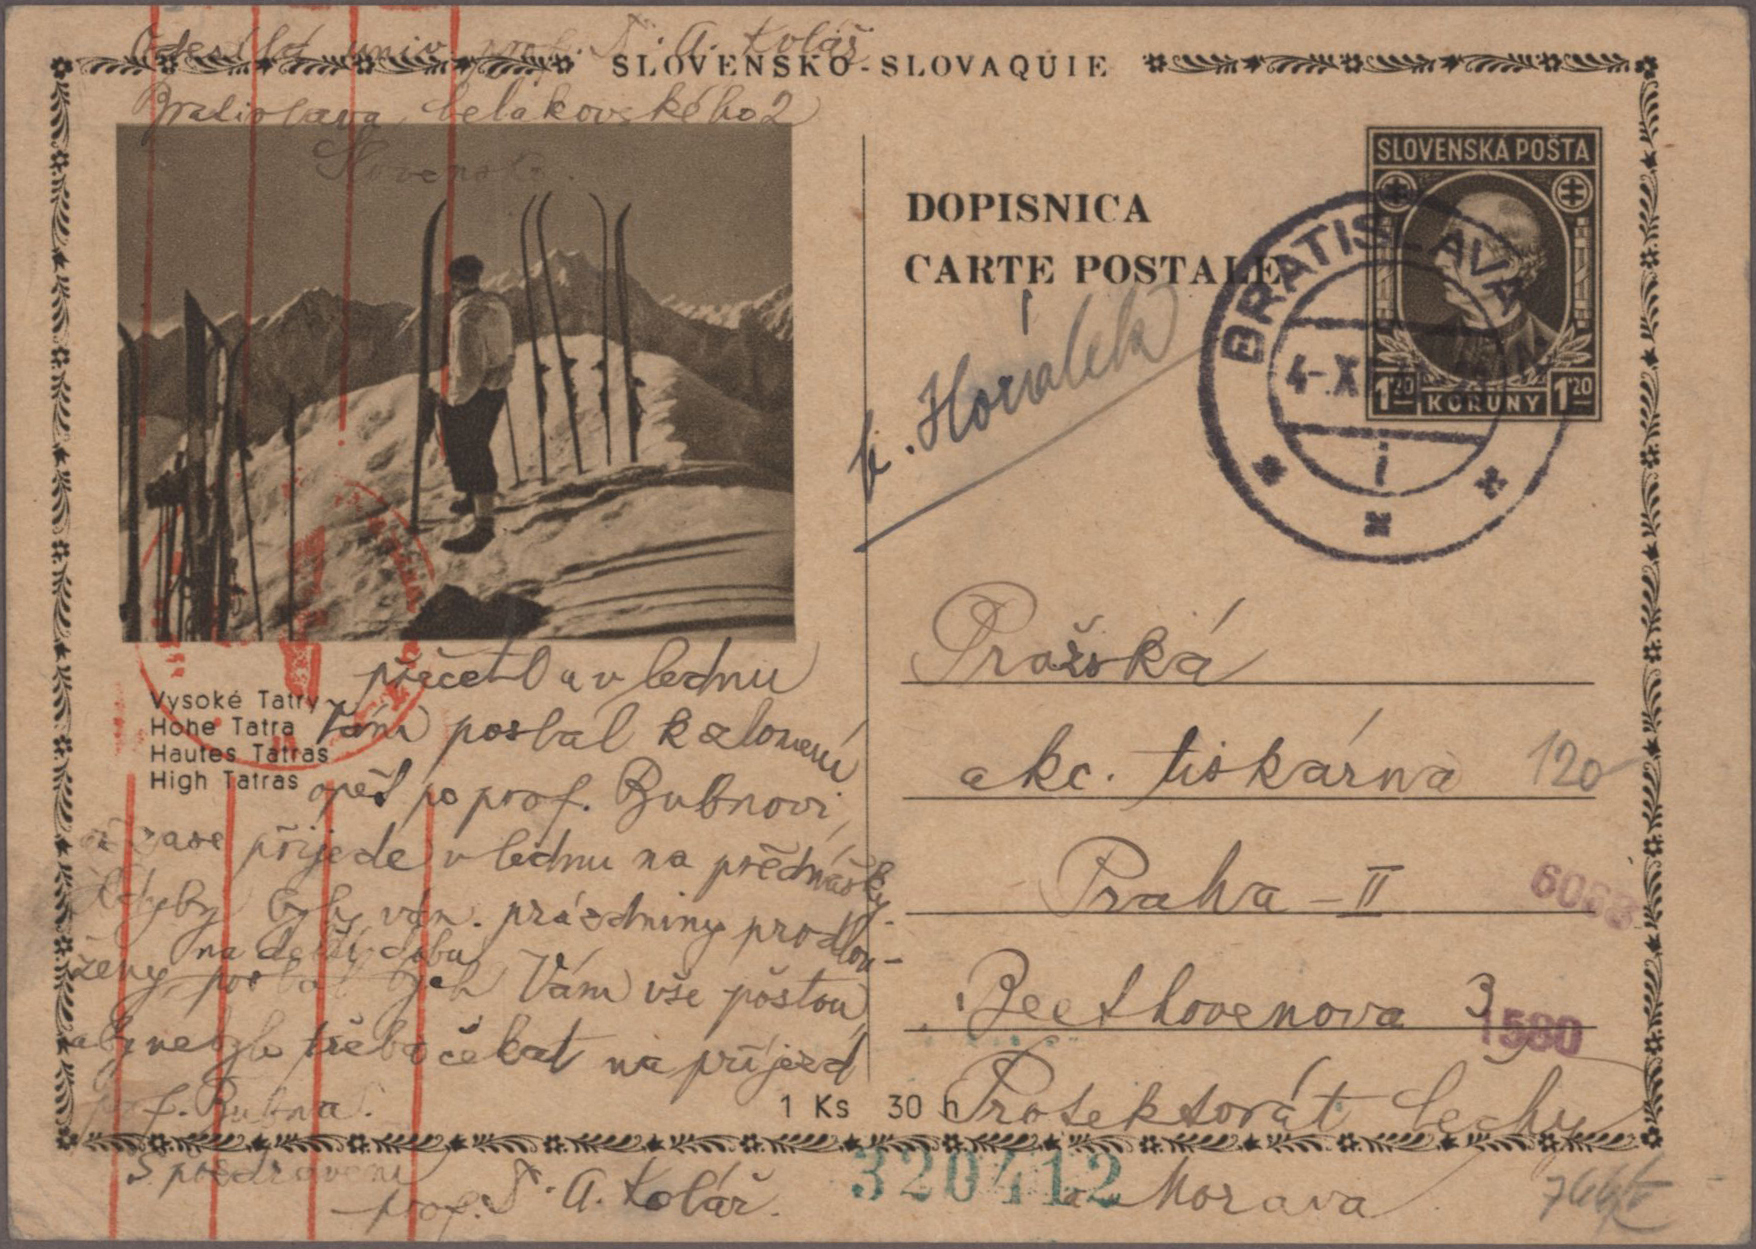 Odesílá univ. prof. A. Kolář
SLOVENSKO-SLOVAQUIE
Bratislava, Čelakovského 2
Slovensko.
SLOVENSKÁ POŠTA
1'20 KORUNY 1'20
DOPISNICA
CARTE POSTALE
BRATISLAVA
4-X
1
Horálek
Vysoké Tatry
Hohe Tatra
Hautes Tatras
High Tatras
přečetl a v lednu
Vám poslal k zlomení
opět po prof. Bubnovi,
zase přijede v lednu na přednášky.
Kdyby byly ván. prázdniny prodlou-
na delší dobu
ženy poslal bych Vám vše poštou
aby nebylo třeba čekat na příjezd
prof. Bubna.
S pozdravem
prof. A. Kolář.
Pražská
akc. tiskárna
120
Praha - II
6068
Beethovenova 3
1580
1 Ks 30 h
Protektorát Čechy
a Morava
320412